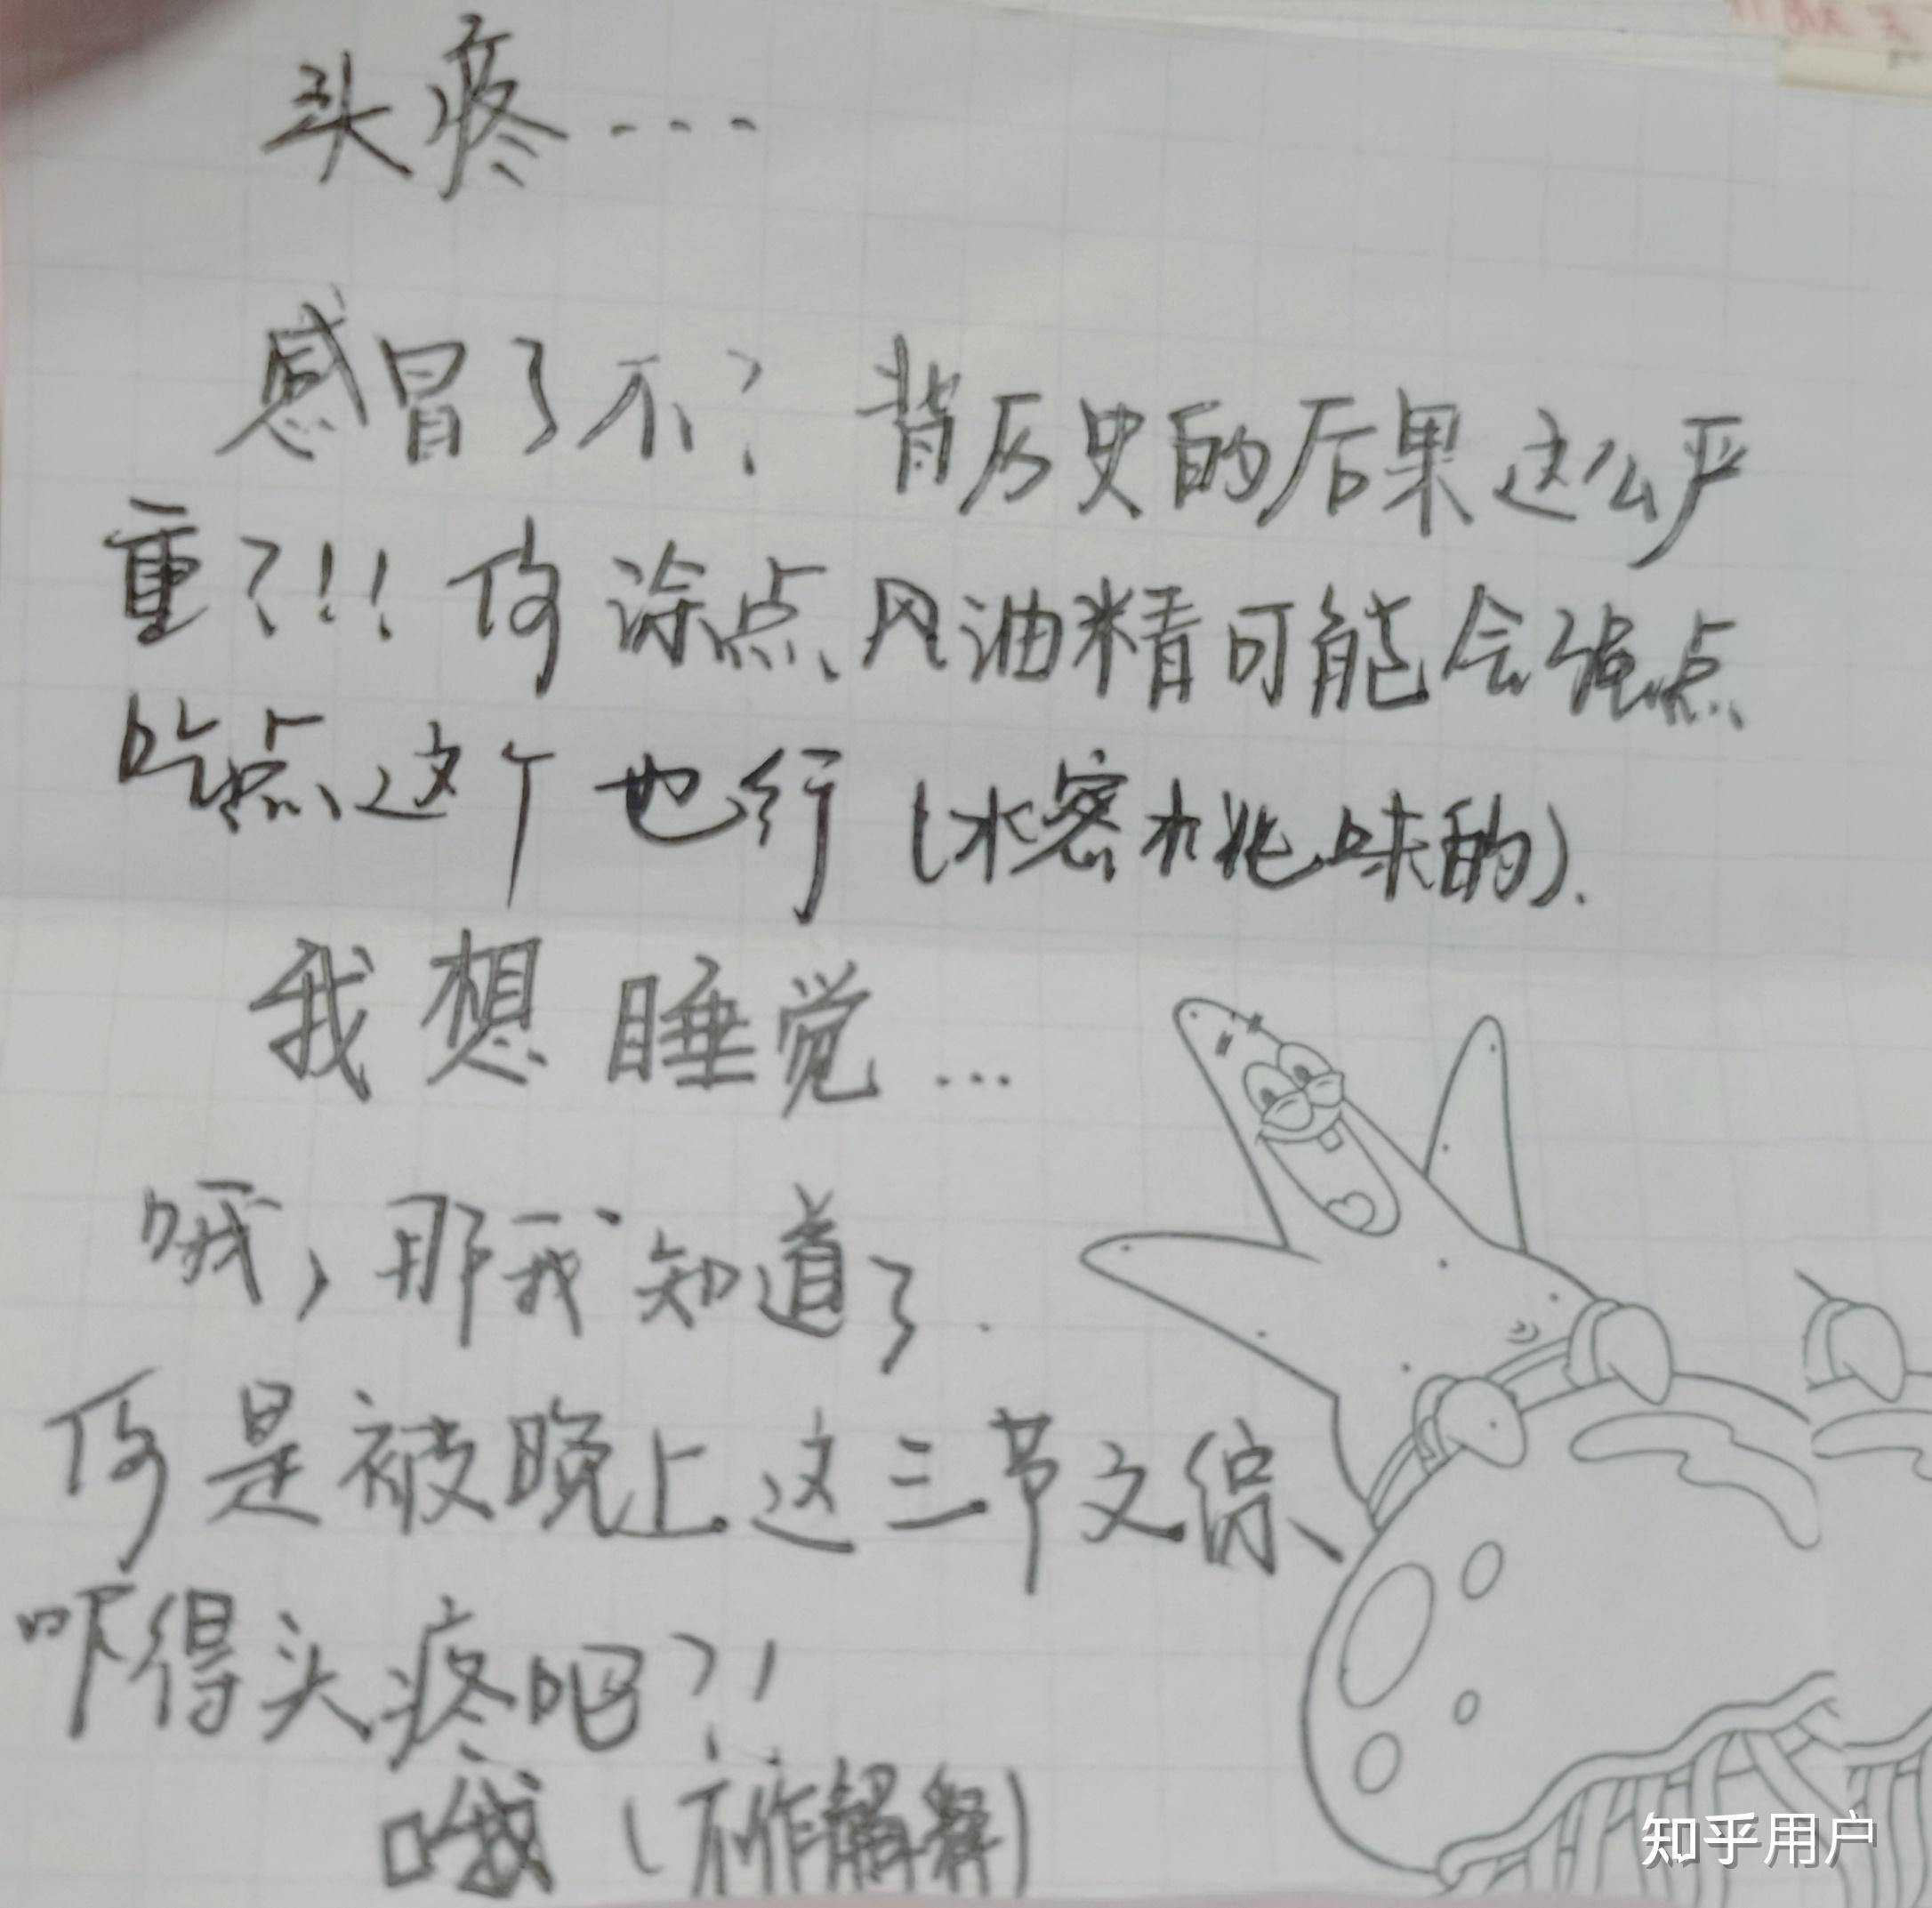 头疼...
感冒了不? 背历史的后果这么严
重?!! 你涂点风油精可能会强点
吃点这个也行(水密桃味的).
我想睡觉...
哦,那我知道了.
你是被晚上这三节文综
吓得头疼吧?!
哦(不作解释)
知乎用户